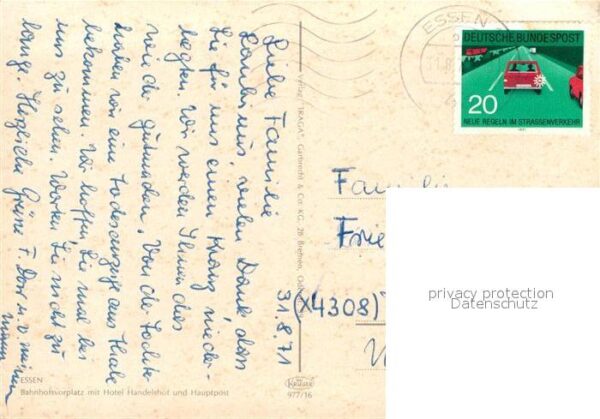 Liebe Familie
Laicht uns, vielen Dank, dass
Sie für uns einen Kranz nieder-
legten. Wir werden Ihnen das
wieder gutmachen. Von
haben wir eine Todesanzeige aus Halle
bekommen. Wir hoffen, Sie mal bei
uns zu sehen. Warten Sie nicht zu
lang. Herzliche Grüsse F. Dorr u. v. meinen
31.8.71
Verlag "KRAGA", Garbrecht & Co. KG, 28 Bremen,
ESSEN
DEUTSCHE BUNDESPOST
20
NEUE REGELN IM STRASSENVERKEHR
Familie
Frie
(X4308)
privacy protection
Datenschutz
ESSEN
Bahnhofsvorplatz mit Hotel Handelshof und Hauptpost
977/16